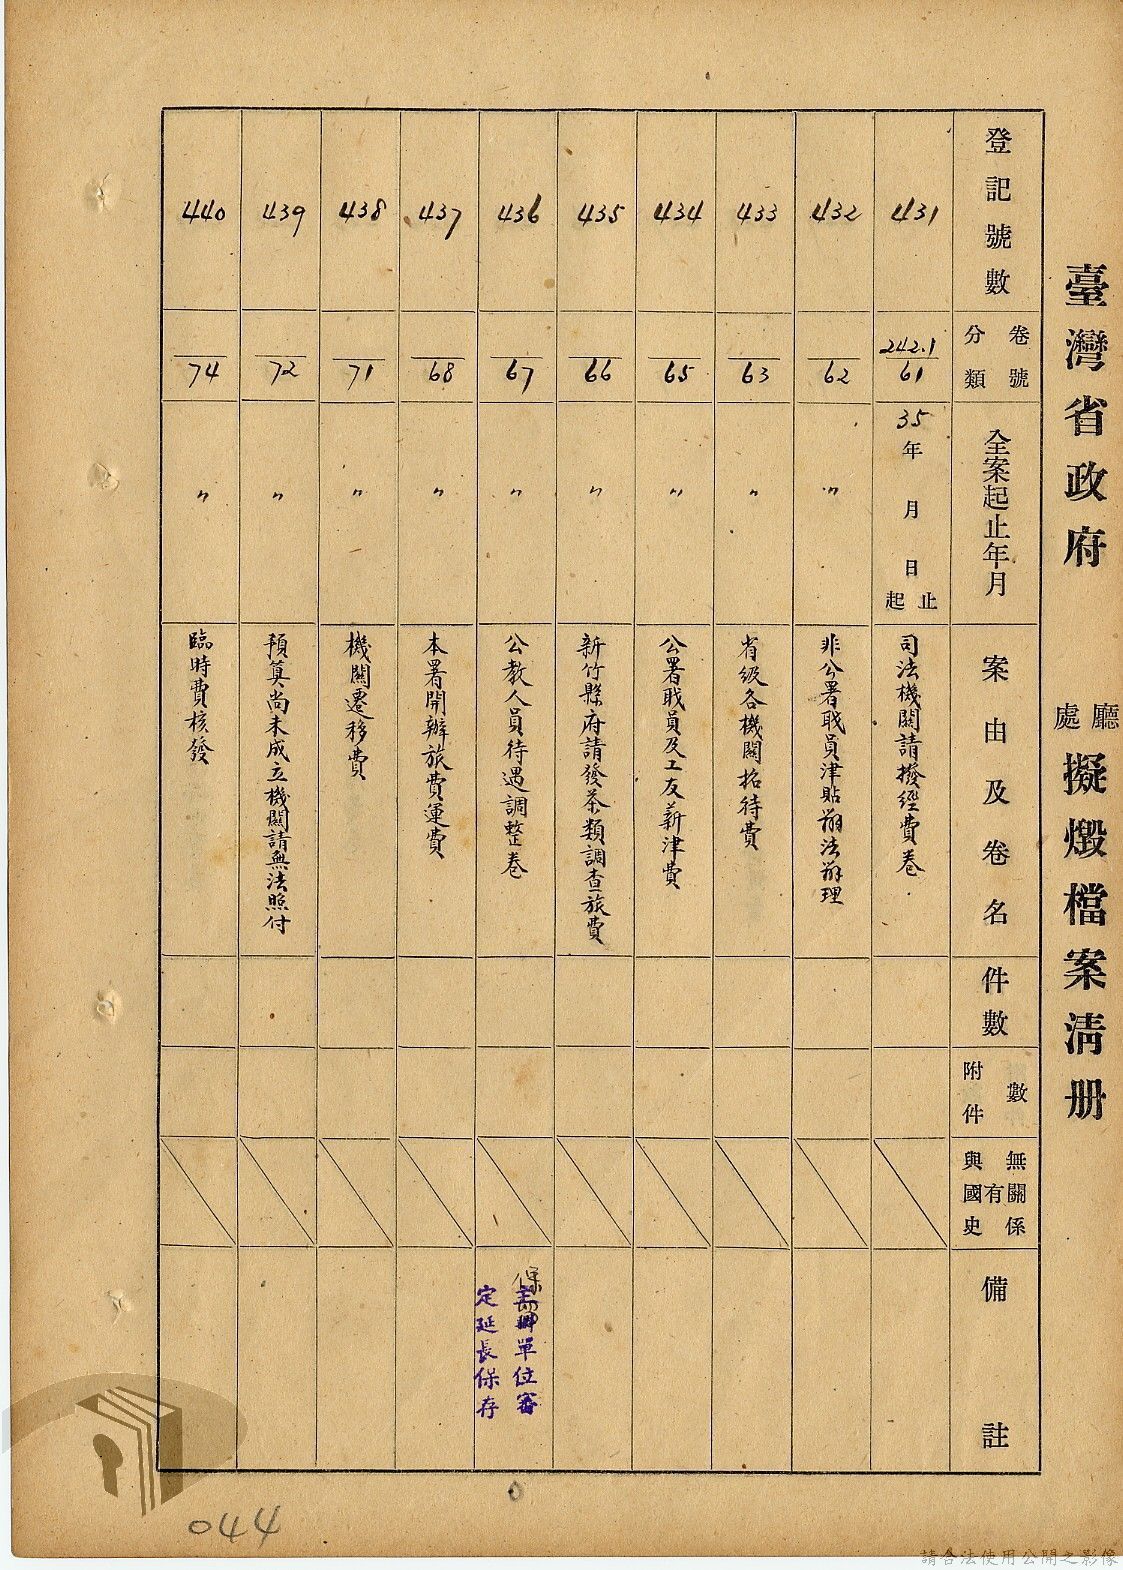 臺灣省政府 廳處 擬燬檔案淸册
登記號數
卷號
分類
全案起止年月
案由及卷名
件數
附件數
與國史有無關係
備註
431
242.1
61
35年 月 日 起止
司法機關請撥經費卷
432
62
〃
非公署職員津貼辦法辦理
433
63
〃
省級各機關招待費
434
65
〃
公署職員及工友薪津費
435
66
〃
新竹縣府請發茶類調查旅費
436
67
〃
公教人員待遇調整卷
單位審
定延長保存
437
68
〃
本署開辦旅費運費
438
71
〃
機關遷移費
439
72
〃
預算尚未成立機關請無法照付
440
74
〃
臨時費核發
044
請合法使用公開之影像